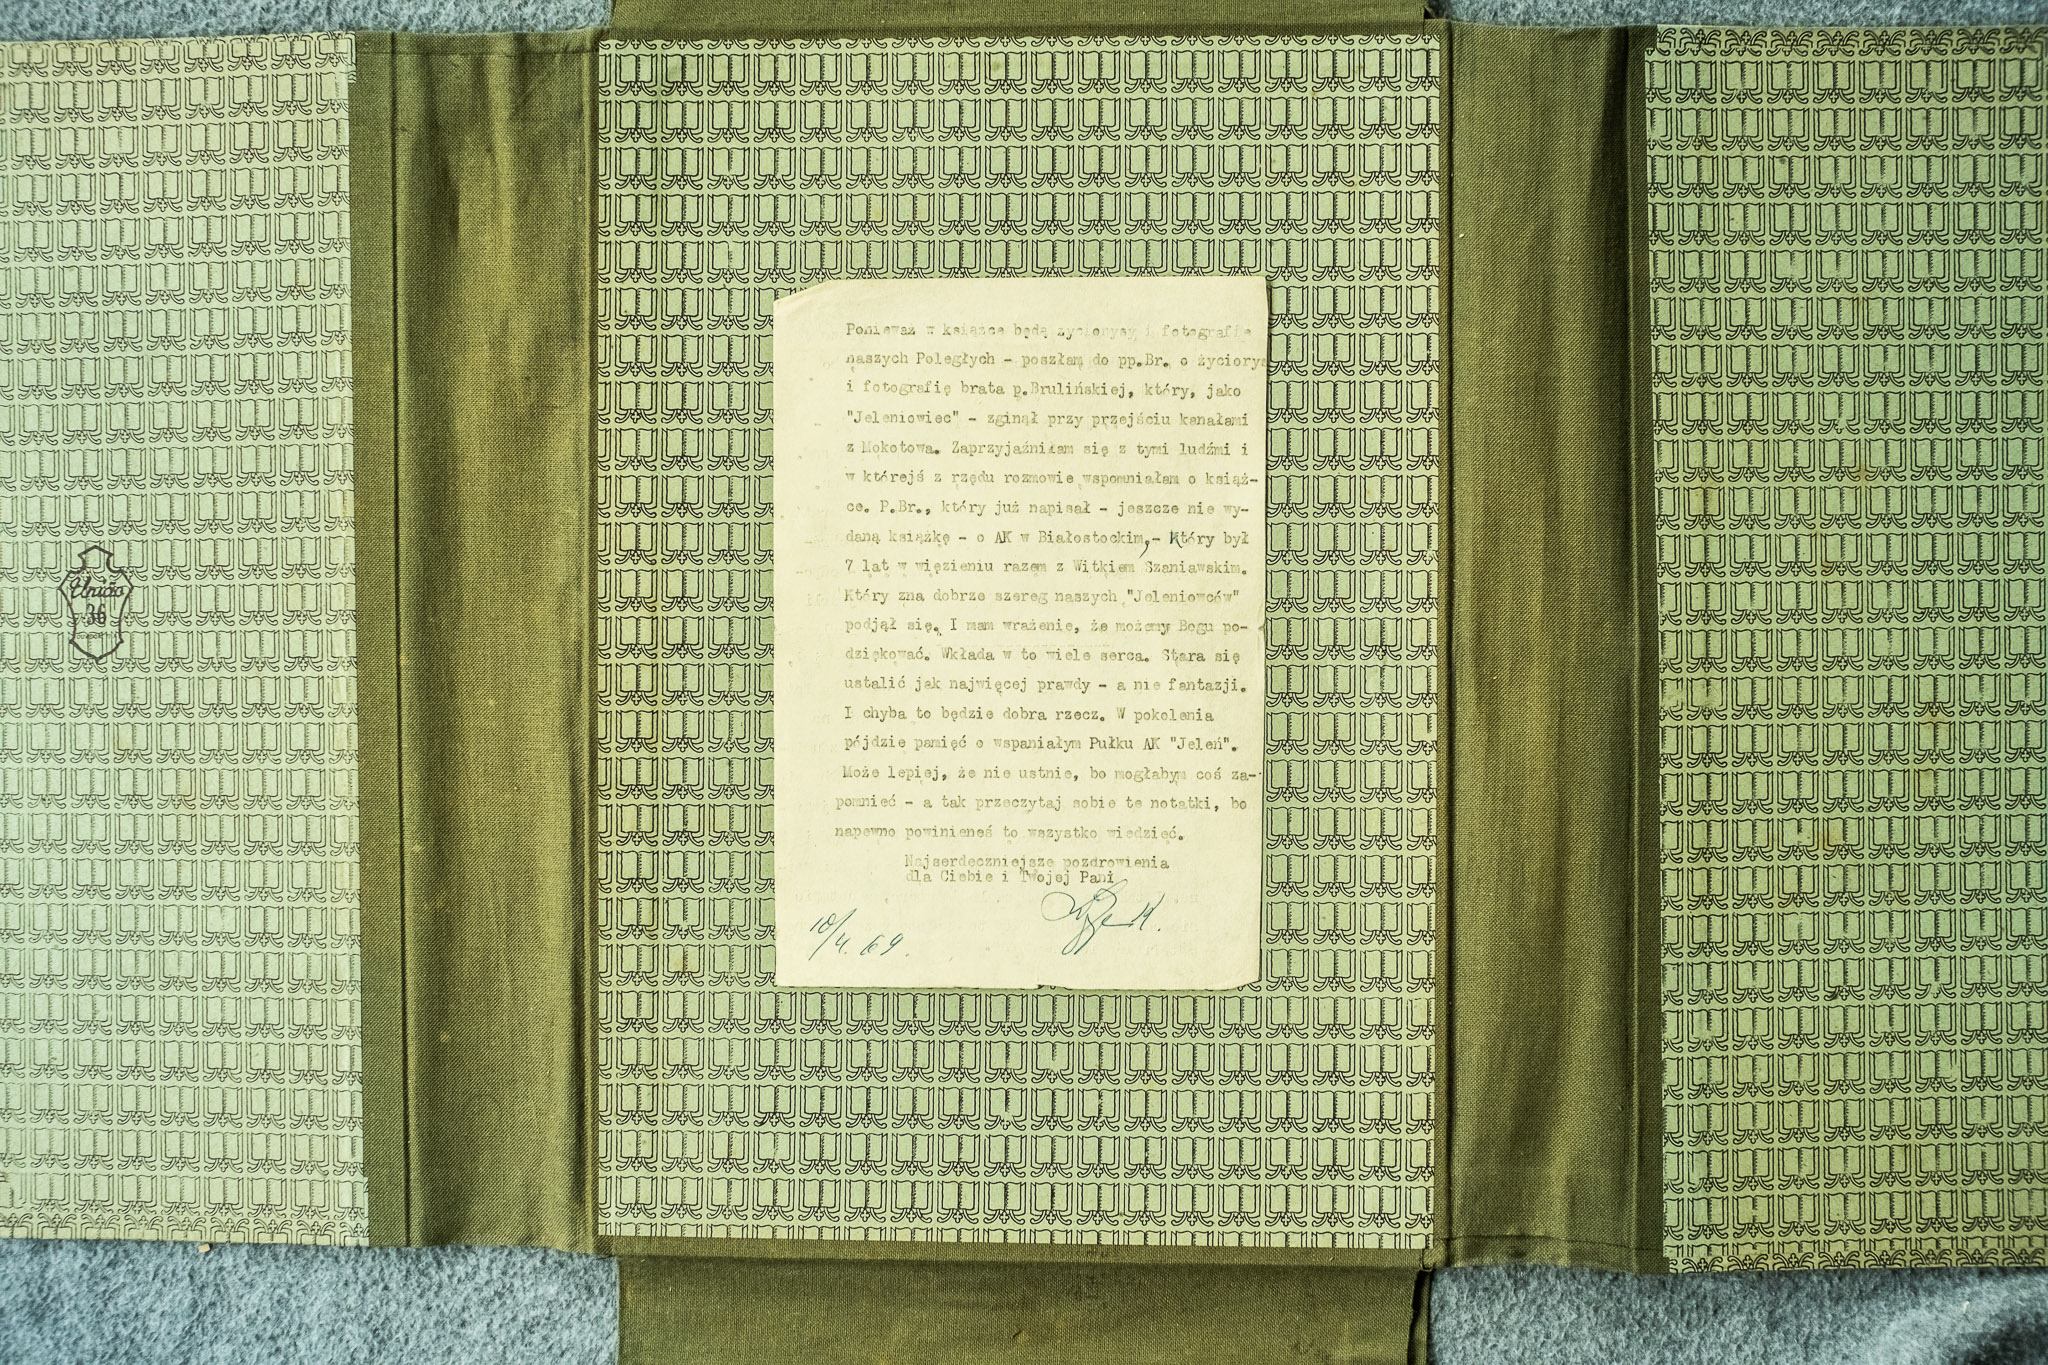 Ponieważ w książce będą życiorysy i fotografie
naszych Poległych - poszłam do pp.Br. o życiorys
i fotografię brata p.Brulińskiej, który, jako
"Jeleniowiec" - zginął przy przejściu kanałami
z Mokotowa. Zaprzyjaźniłam się z tymi ludźmi i
w którejś z rzędu rozmowie wspomniałam o książ-
ce. P.Br., który już napisał - jeszcze nie wy-
daną książkę - o AK w Białostockim,- Który był
7 lat w więzieniu razem z Witkiem Szaniawskim.
Który zna dobrze szereg naszych "Jeleniowców"
podjął się. I mam wrażenie, że możemy Bogu po-
dziękować. Wkłada w to wiele serca. Stara się
ustalić jak najwięcej prawdy - a nie fantazji.
I chyba to będzie dobra rzecz. W pokolenia
pójdzie pamięć o wspaniałym Pułku AK "Jeleń".
Może lepiej, że nie ustnie, bo mogłabym coś za-
pomnieć - a tak przeczytaj sobie te notatki, bo
napewno powinieneś to wszystko wiedzieć.
Najserdeczniejsze pozdrowienia
dla Ciebie i Twojej Pani
10/4.69.
Unida
36